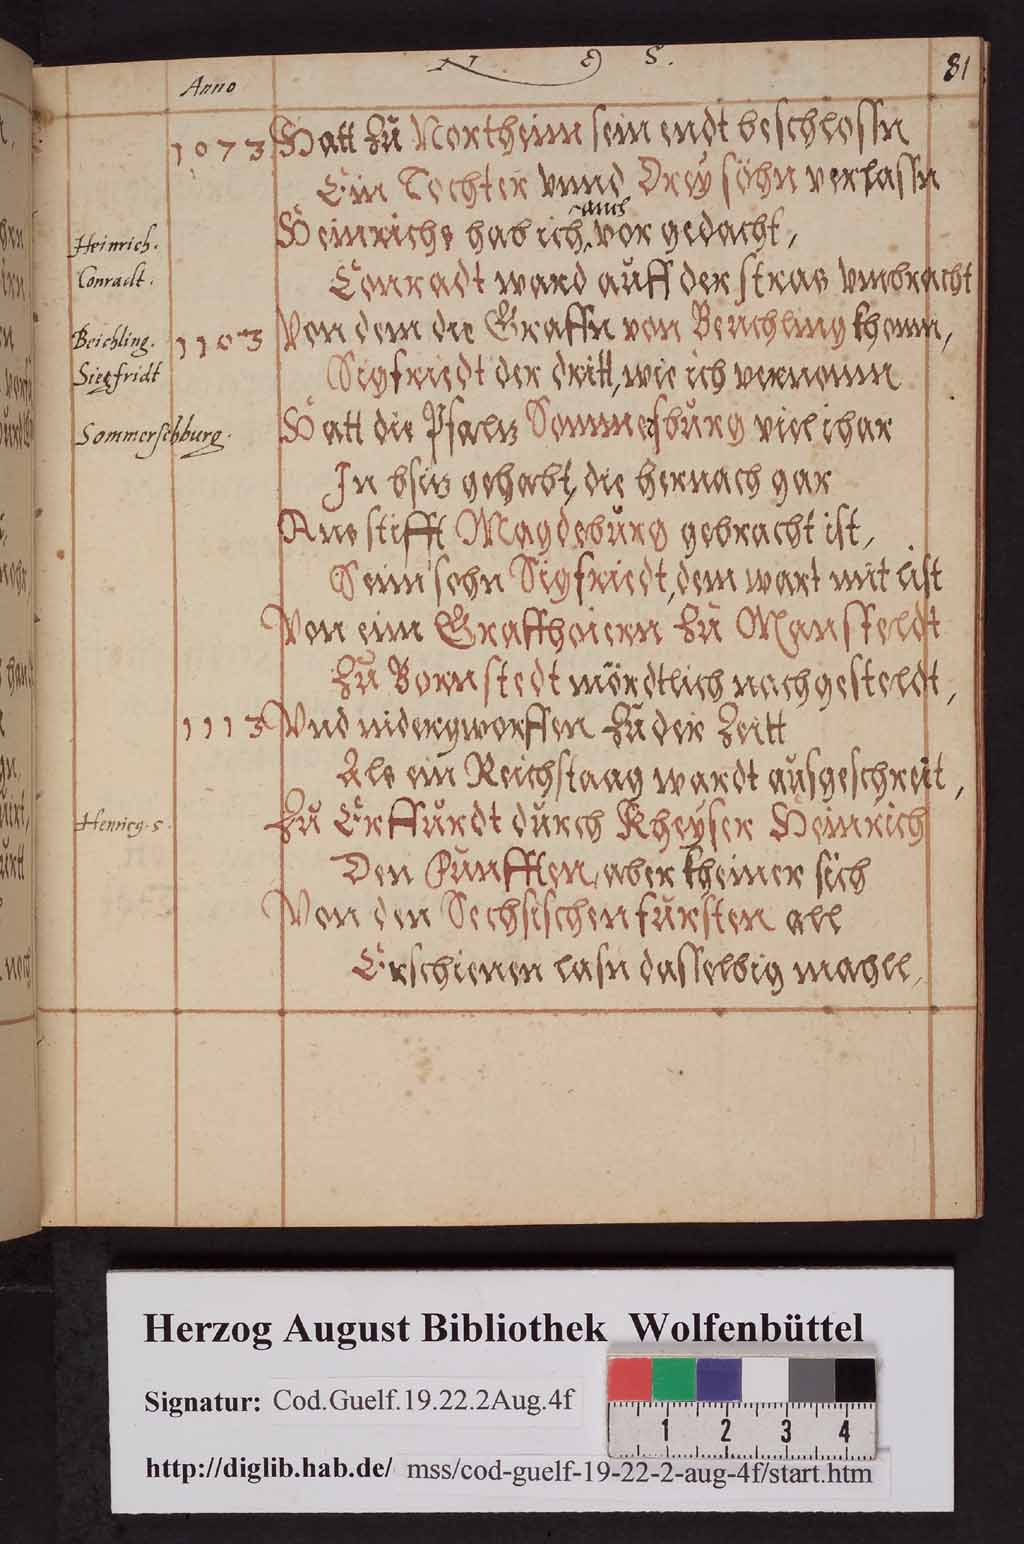 Anno 81
1073 Hatt zu Northeim sein endt beschlossn
Ein Tochter vnnd Drey söhn verlassn
auch
Heinrich. Heinrichs hab ich vor gedacht,
Conradt. Conradt ward auff der stras vmbracht
Beichling. 1103 Von dem die Graffn von Beuchling khomn,
Siegfridt Sigfriedt der dritt, wie ich vernomn
Sommerschburg. Hatt die Pfaltz Sommersburg viel ihar
In bsitz gehabt, die hernach gar
Ans stifft Magdeburg gebracht ist,
Seim sohn Sigfriedt, dem wart mit list
Von eim Graff hoiern zu Mansfeldt
Zu Bornstedt mördtlich nachgesteldt,
1113 Vnd nidergworffen zu der Zeitt
Als ein Reichstaag wardt ausgeschreit,
Henricg. 5. Zu Erffurdt durch Kheyser Heinrich
Den Funfften, aber kheiner sich
Von den Sechsischen fursten all
Erschienen lasn dasselbig mahll,
Herzog August Bibliothek Wolfenbüttel
Signatur: Cod.Guelf.19.22.2Aug.4f
1 2 3 4
http://diglib.hab.de/ mss/cod-guelf-19-22-2-aug-4f/start.htm